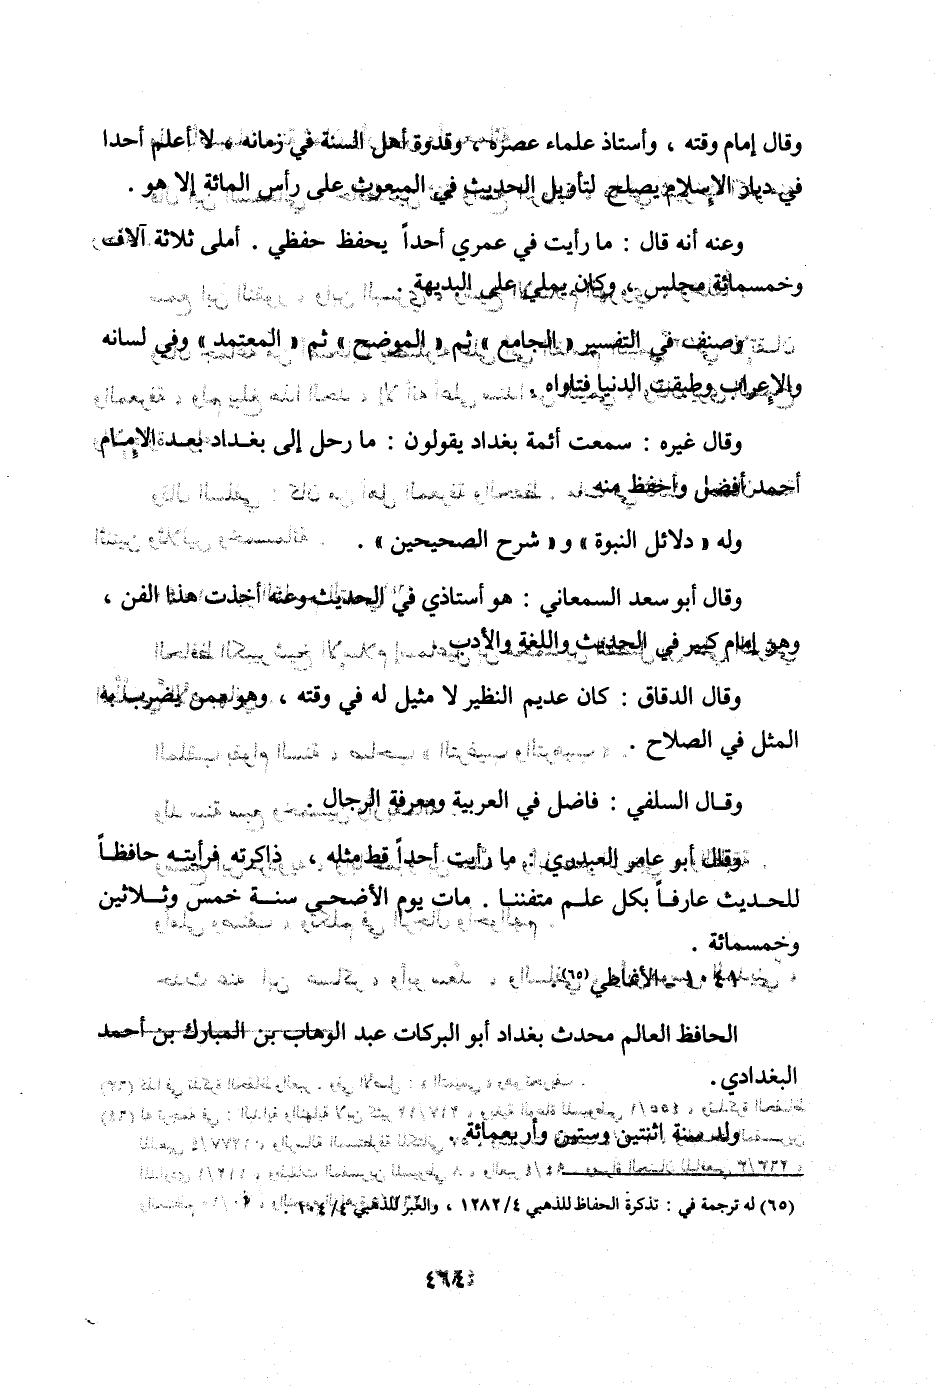 وقال إمام وقته ، وأستاذ علماء عصره ، وقدوة أهل السنة في زمانه ، لا أعلم أحدا
في ديار الإسلام يصلح لتأويل الحديث في المبعوث على رأس المائة إلا هو .
وعنه أنه قال : ما رأيت في عمري أحداً يحفظ حفظي . أملى ثلاثة آلاف
وخمسمائة مجلس ، وكان يملي على البديهة .
وصنف في التفسير « الجامع » ثم « الموضح » ثم « المعتمد » وفي لسانه
والإعراب وطبقت الدنيا فتاواه .
وقال غيره : سمعت أئمة بغداد يقولون : ما رحل إلى بغداد بعد الإمام
أحمد أفضل وأحفظ منه
وله « دلائل النبوة » و « شرح الصحيحين » .
وقال أبو سعد السمعاني : هو أستاذي في الحديث وعنه أخذت هذا الفن ،
وهو إمام كبير في الحديث واللغة والأدب
وقال الدقاق : كان عديم النظير لا مثيل له في وقته ، وهو ممن يضرب به
المثل في الصلاح .
وقال السلفي : فاضل في العربية ومعرفة الرجال .
وقال أبو عامر العبدري : ما رأيت أحداً قط مثله ، ذاكرته فرأيته حافظاً
للحديث عارفاً بكل علم متفننا . مات يوم الأضحى سنة خمس وثلاثين
وخمسمائة .
(٦٥)
الحافظ العالم محدث بغداد أبو البركات عبد الوهاب بن المبارك بن أحمد
البغدادي .
ولد سنة اثنتين وستين وأربعمائة .
(٦٥) له ترجمة في : تذكرة الحفاظ للذهبي ٤/١٢٨٢ ، والعبر للذهبي